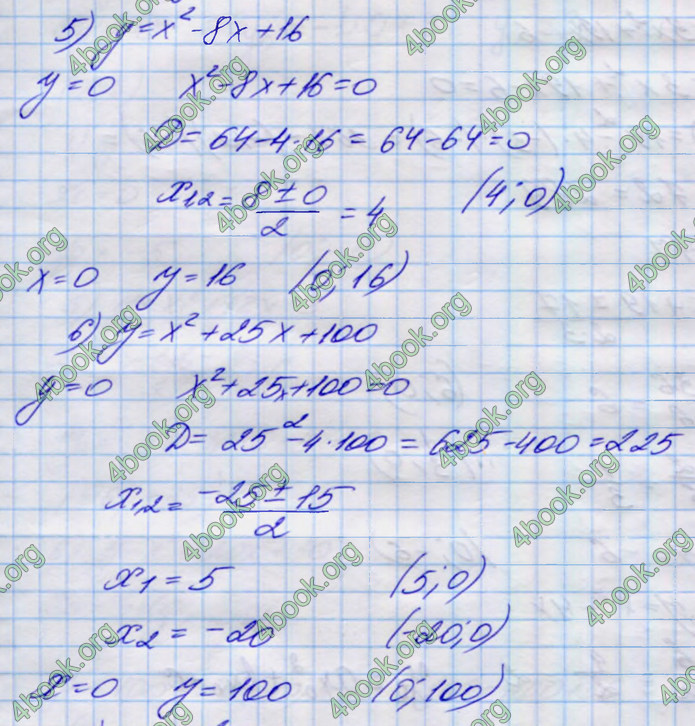 5) y=x²-8x+16
y=0 x²-8x+16=0
D=64-4·16=64-64=0
x1,2=(8±0)/2=4 (4;0)
x=0 y=16 (0;16)
6) y=x²+25x+100
y=0 x²+25x+100=0
D=25²-4·100=625-400=225
x1,2=(-25±15)/2
x1=5 (5;0)
x2=-20 (-20;0)
x=0 y=100 (0;100)
4book.org